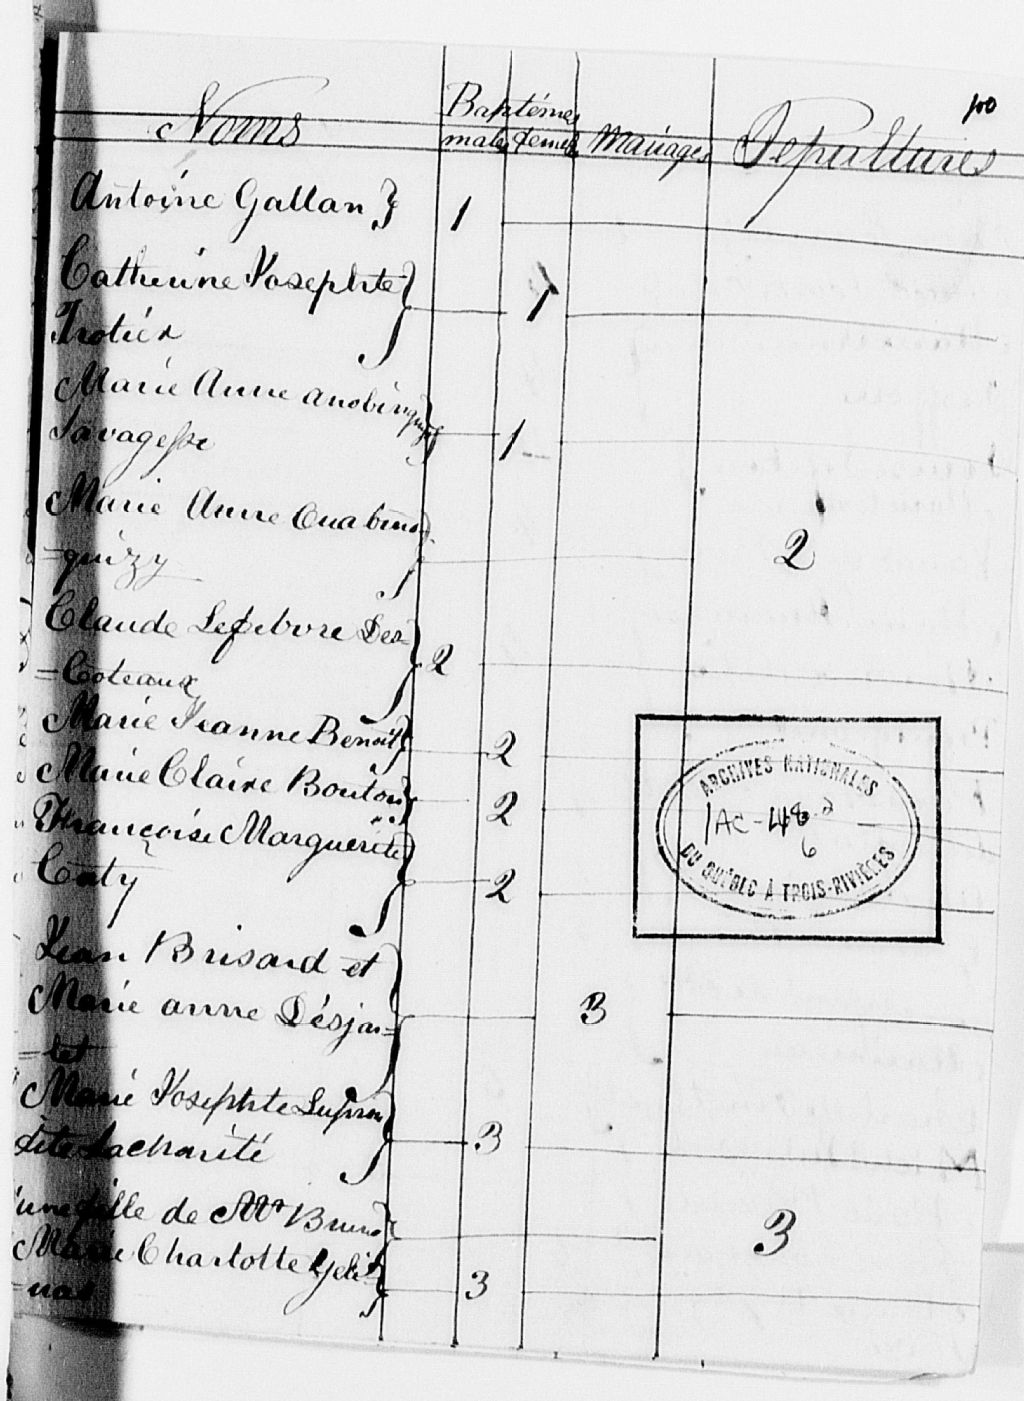 100
Noms Baptêmes Mariages Sepultures
males femel
Antoine Gallan } 1
Catherine Josephte
Trotier } 1
Marie Anne anobinquizy
Savagesse 1
Marie Anne Ouabino
=quizy 2
Claude Lefebvre Des=
=Coteaux } 2
Marie Jeanne Benoit } 2
Marie Claire Bouton } 2
Françoise Marguerite
Couty } 2
Jean Brisard et
Marie anne Désjar=
=let } 3
Marie Josephte
dite Lacharité } 3
une fille de Mr Bruno } 3
Marie Charlotte Geli=
=nas } 3
ARCHIVES NATIONALES
1AC-48-2
6
DU QUÉBEC À TROIS-RIVIÈRES